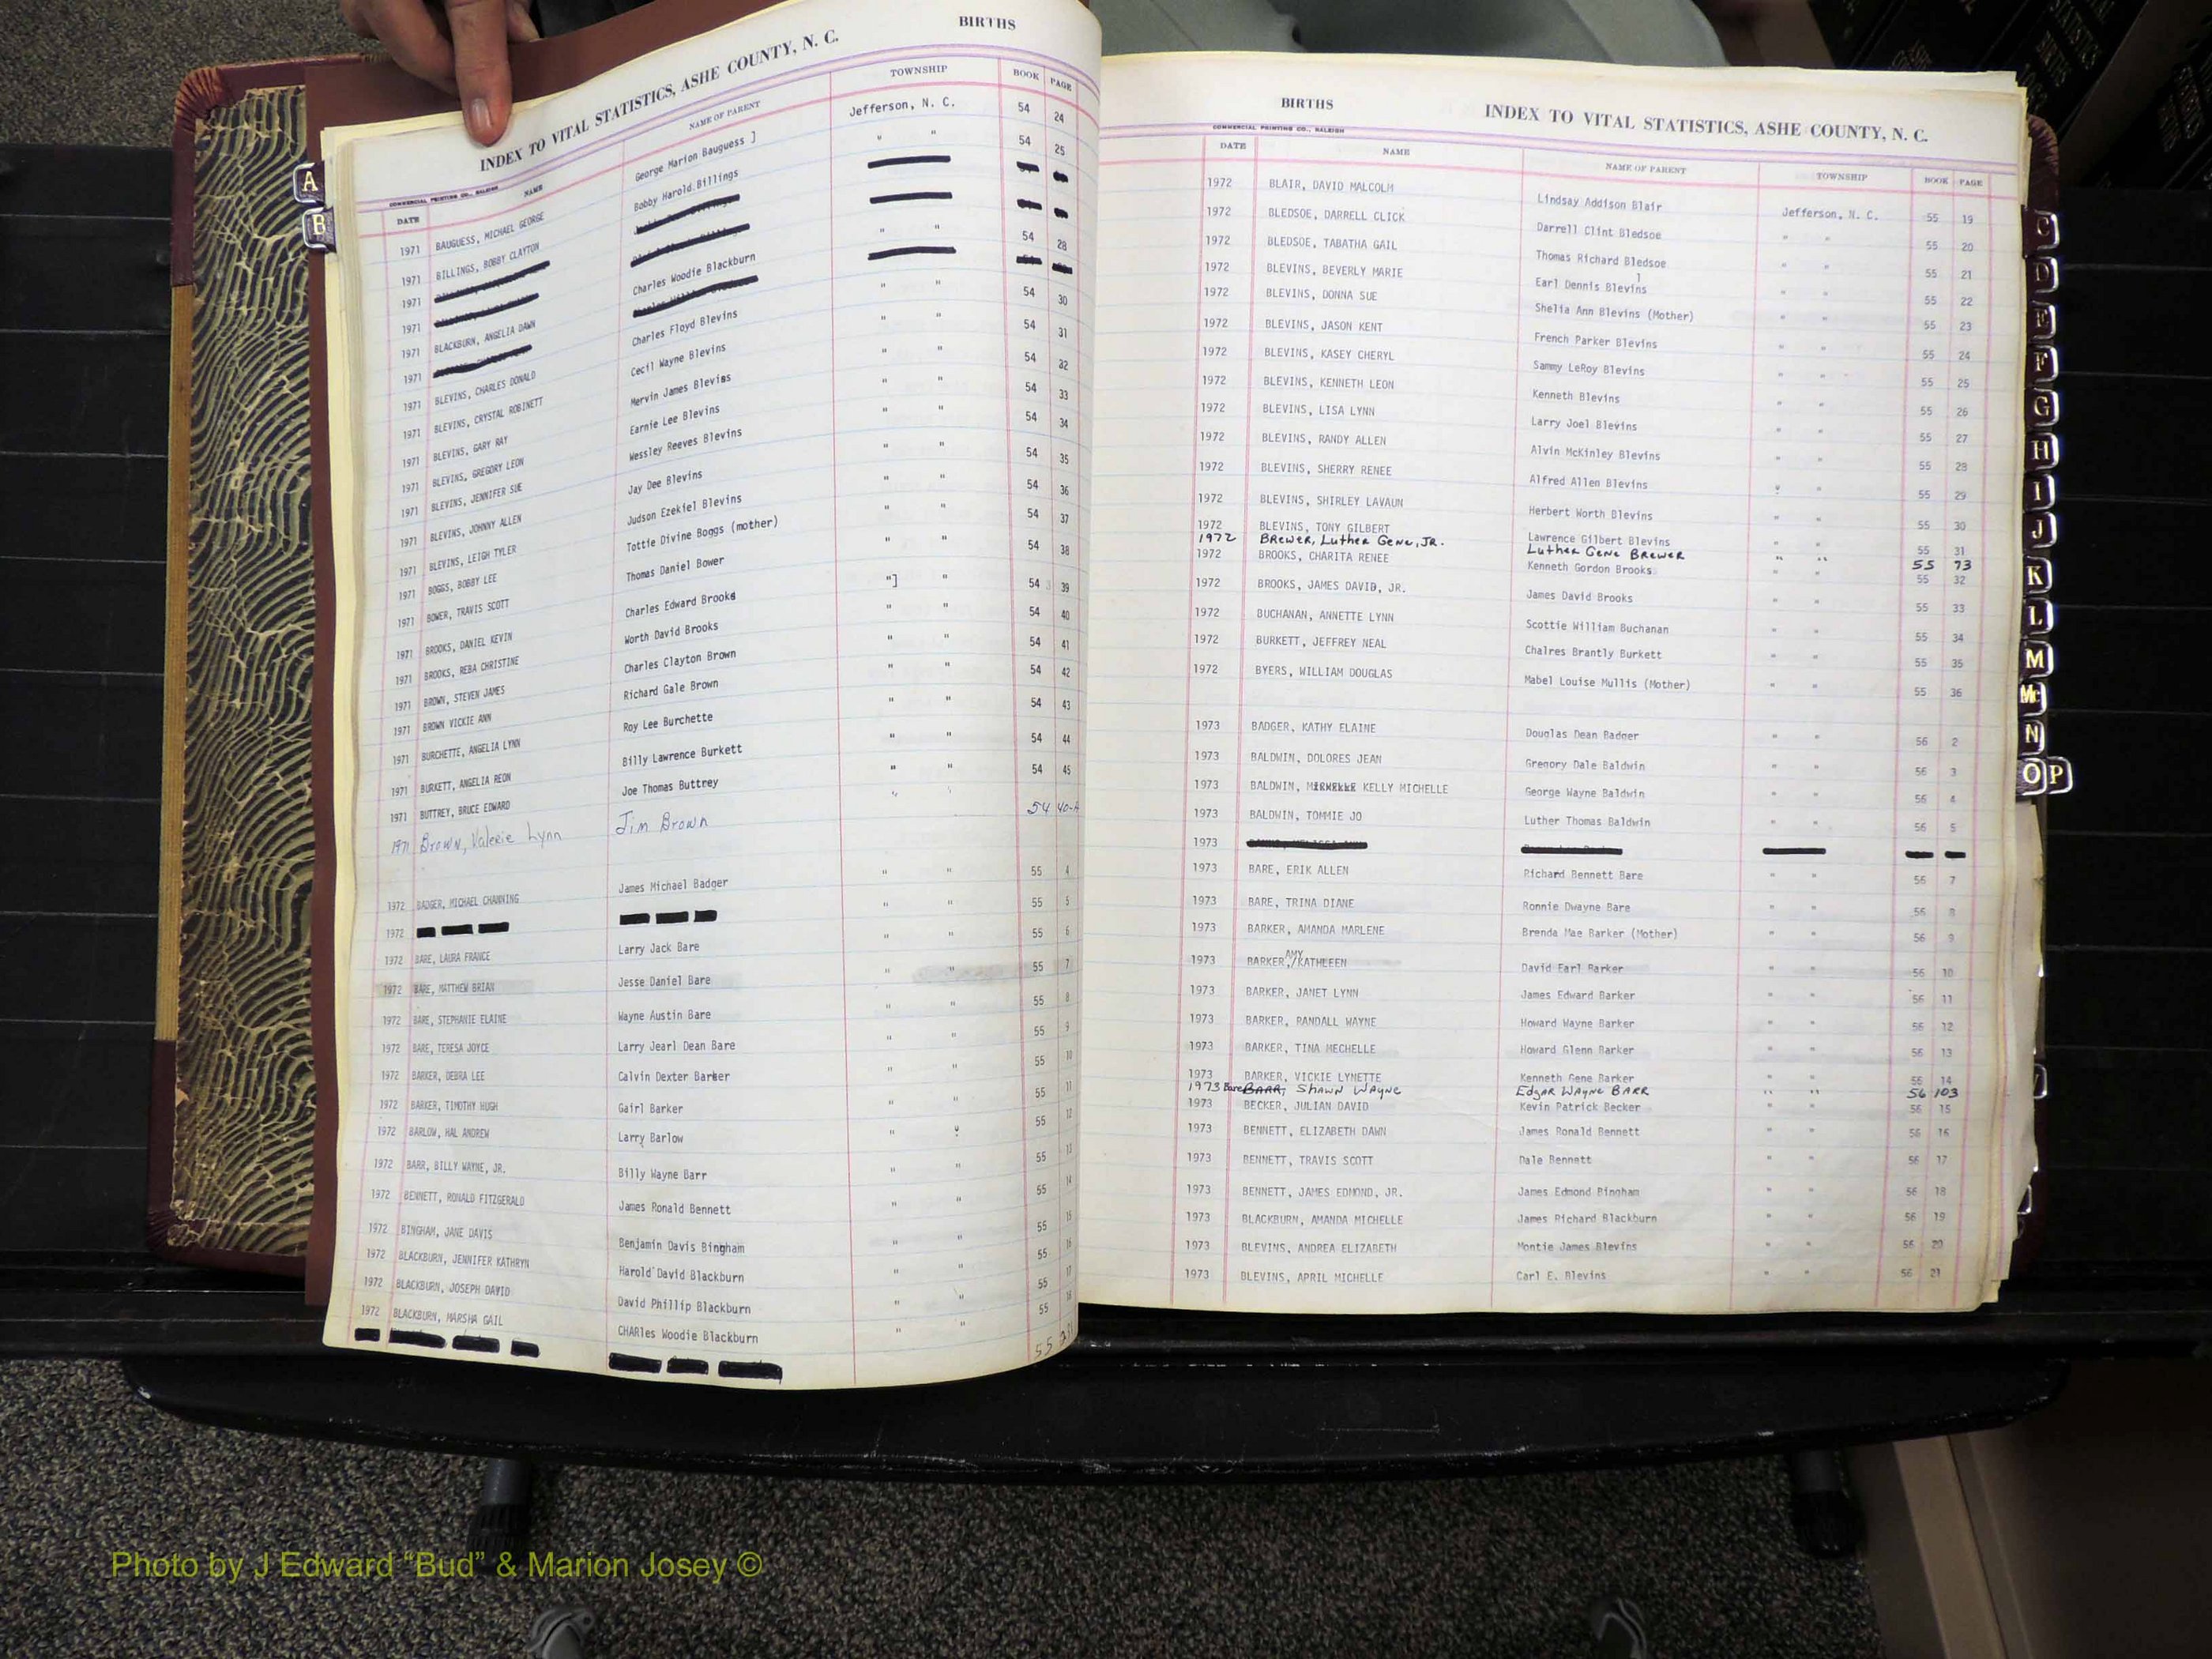 BIRTHS
INDEX TO VITAL STATISTICS, ASHE COUNTY, N. C.
COMMERCIAL PRINTING CO., RALEIGH
DATE NAME NAME OF PARENT TOWNSHIP BOOK PAGE
1971 BAUGUESS, MICHAEL GEORGE George Marion Bauguess ] Jefferson, N. C. 54 24
1971 BILLINGS, BOBBY CLAYTON Bobby Harold Billings " " 54 25
1971
1971
1971 BLACKBURN, ANGELIA DAWN Charles Woodie Blackburn " " 54 28
1971
1971 BLEVINS, CHARLES DONALD Charles Floyd Blevins " " 54 30
1971 BLEVINS, CRYSTAL ROBINETT Cecil Wayne Blevins " " 54 31
1971 BLEVINS, GARY RAY Mervin James Blevins " " 54 32
1971 BLEVINS, GREGORY LEON Earnie Lee Blevins " " 54 33
1971 BLEVINS, JENNIFER SUE Wessley Reeves Blevins " " 54 34
1971 BLEVINS, JOHNNY ALLEN Jay Dee Blevins " " 54 35
1971 BLEVINS, LEIGH TYLER Judson Ezekiel Blevins " " 54 36
1971 BOGGS, BOBBY LEE Tottie Divine Boggs (mother) " " 54 37
1971 BOWER, TRAVIS SCOTT Thomas Daniel Bower " " 54 38
1971 BROOKS, DANIEL KEVIN Charles Edward Brooks "] " 54 39
1971 BROOKS, REBA CHRISTINE Worth David Brooks " " 54 40
1971 BROWN, STEVEN JAMES Charles Clayton Brown " " 54 41
1971 BROWN VICKIE ANN Richard Gale Brown " " 54 42
1971 BURCHETTE, ANGELIA LYNN Roy Lee Burchette " " 54 43
1971 BURKETT, ANGELIA REON Billy Lawrence Burkett " " 54 44
1971 BUTTREY, BRUCE EDWARD Joe Thomas Buttrey " " 54 45
1971 Brown, Valerie Lynn Jim Brown " " 54 40-A
1972 BADGER, MICHAEL CHANNING James Michael Badger " " 55 4
1972 " " 55 5
1972 BARE, LAURA FRANCE Larry Jack Bare " " 55 6
1972 BARE, MATTHEW BRIAN Jesse Daniel Bare " " 55 7
1972 BARE, STEPHANIE ELAINE Wayne Austin Bare " " 55 8
1972 BARE, TERESA JOYCE Larry Jearl Dean Bare " " 55 9
1972 BARKER, DEBRA LEE Calvin Dexter Barker " " 55 10
1972 BARKER, TIMOTHY HUGH Gairl Barker " " 55 11
1972 BARLOW, HAL ANDREW Larry Barlow " " 55 12
1972 BARR, BILLY WAYNE, JR. Billy Wayne Barr " " 55 13
1972 BENNETT, RONALD FITZGERALD James Ronald Bennett " " 55 14
1972 BINGHAM, JANE DAVIS Benjamin Davis Bingham " " 55 15
1972 BLACKBURN, JENNIFER KATHRYN Harold David Blackburn " " 55 16
1972 BLACKBURN, JOSEPH DAVID David Phillip Blackburn " " 55 17
1972 BLACKBURN, MARSHA GAIL CHARles Woodie Blackburn " " 55 18
55
BIRTHS
INDEX TO VITAL STATISTICS, ASHE COUNTY, N. C.
COMMERCIAL PRINTING CO., RALEIGH
DATE NAME NAME OF PARENT TOWNSHIP BOOK PAGE
1972 BLAIR, DAVID MALCOLM Lindsay Addison Blair Jefferson, N. C. 55 19
1972 BLEDSOE, DARRELL CLICK Darrell Clint Bledsoe " " 55 20
1972 BLEDSOE, TABATHA GAIL Thomas Richard Bledsoe " " 55 21
1972 BLEVINS, BEVERLY MARIE Earl Dennis Blevins " " 55 22
1972 BLEVINS, DONNA SUE Shelia Ann Blevins (Mother) " " 55 23
1972 BLEVINS, JASON KENT French Parker Blevins " " 55 24
1972 BLEVINS, KASEY CHERYL Sammy LeRoy Blevins " " 55 25
1972 BLEVINS, KENNETH LEON Kenneth Blevins " " 55 26
1972 BLEVINS, LISA LYNN Larry Joel Blevins " " 55 27
1972 BLEVINS, RANDY ALLEN Alvin McKinley Blevins " " 55 28
1972 BLEVINS, SHERRY RENEE Alfred Allen Blevins " " 55 29
1972 BLEVINS, SHIRLEY LAVAUN Herbert Worth Blevins " " 55 30
1972 BLEVINS, TONY GILBERT Lawrence Gilbert Blevins " " 55 31
1972 Brewer, Luther Gene, Jr. Luther Gene Brewer " " 55 73
1972 BROOKS, CHARITA RENEE Kenneth Gordon Brooks " " 55 32
1972 BROOKS, JAMES DAVID, JR. James David Brooks " " 55 33
1972 BUCHANAN, ANNETTE LYNN Scottie William Buchanan " " 55 34
1972 BURKETT, JEFFREY NEAL Chalres Brantly Burkett " " 55 35
1972 BYERS, WILLIAM DOUGLAS Mabel Louise Mullis (Mother) " " 55 36
1973 BADGER, KATHY ELAINE Douglas Dean Badger " " 56 2
1973 BALDWIN, DOLORES JEAN Gregory Dale Baldwin " " 56 3
1973 BALDWIN, KELLY MICHELLE George Wayne Baldwin " " 56 4
1973 BALDWIN, TOMMIE JO Luther Thomas Baldwin " " 56 5
1973
1973 BARE, ERIK ALLEN Richard Bennett Bare " " 56 7
1973 BARE, TRINA DIANE Ronnie Dwayne Bare " " 56 8
1973 BARKER, AMANDA MARLENE Brenda Mae Barker (Mother) " " 56 9
1973 BARKER, AMY/KATHLEEN David Earl Barker " " 56 10
1973 BARKER, JANET LYNN James Edward Barker " " 56 11
1973 BARKER, RANDALL WAYNE Howard Wayne Barker " " 56 12
1973 BARKER, TINA MECHELLE Howard Glenn Barker " " 56 13
1973 BARKER, VICKIE LYNETTE Kenneth Gene Barker " " 56 14
1973 Bare BARR, Shawn Wayne Edgar Wayne Barr " " 56 103
1973 BECKER, JULIAN DAVID Kevin Patrick Becker " " 56 15
1973 BENNETT, ELIZABETH DAWN James Ronald Bennett " " 56 16
1973 BENNETT, TRAVIS SCOTT Dale Bennett " " 56 17
1973 BENNETT, JAMES EDMOND, JR. James Edmond Bingham " " 56 18
1973 BLACKBURN, AMANDA MICHELLE James Richard Blackburn " " 56 19
1973 BLEVINS, ANDREA ELIZABETH Montie James Blevins " " 56 20
1973 BLEVINS, APRIL MICHELLE Carl E. Blevins " " 56 21
A
B
C
D
E
F
G
H
I
J
K
L
M
Mc
N
O P
STATISTICS
Photo by J Edward “Bud” & Marion Josey ©